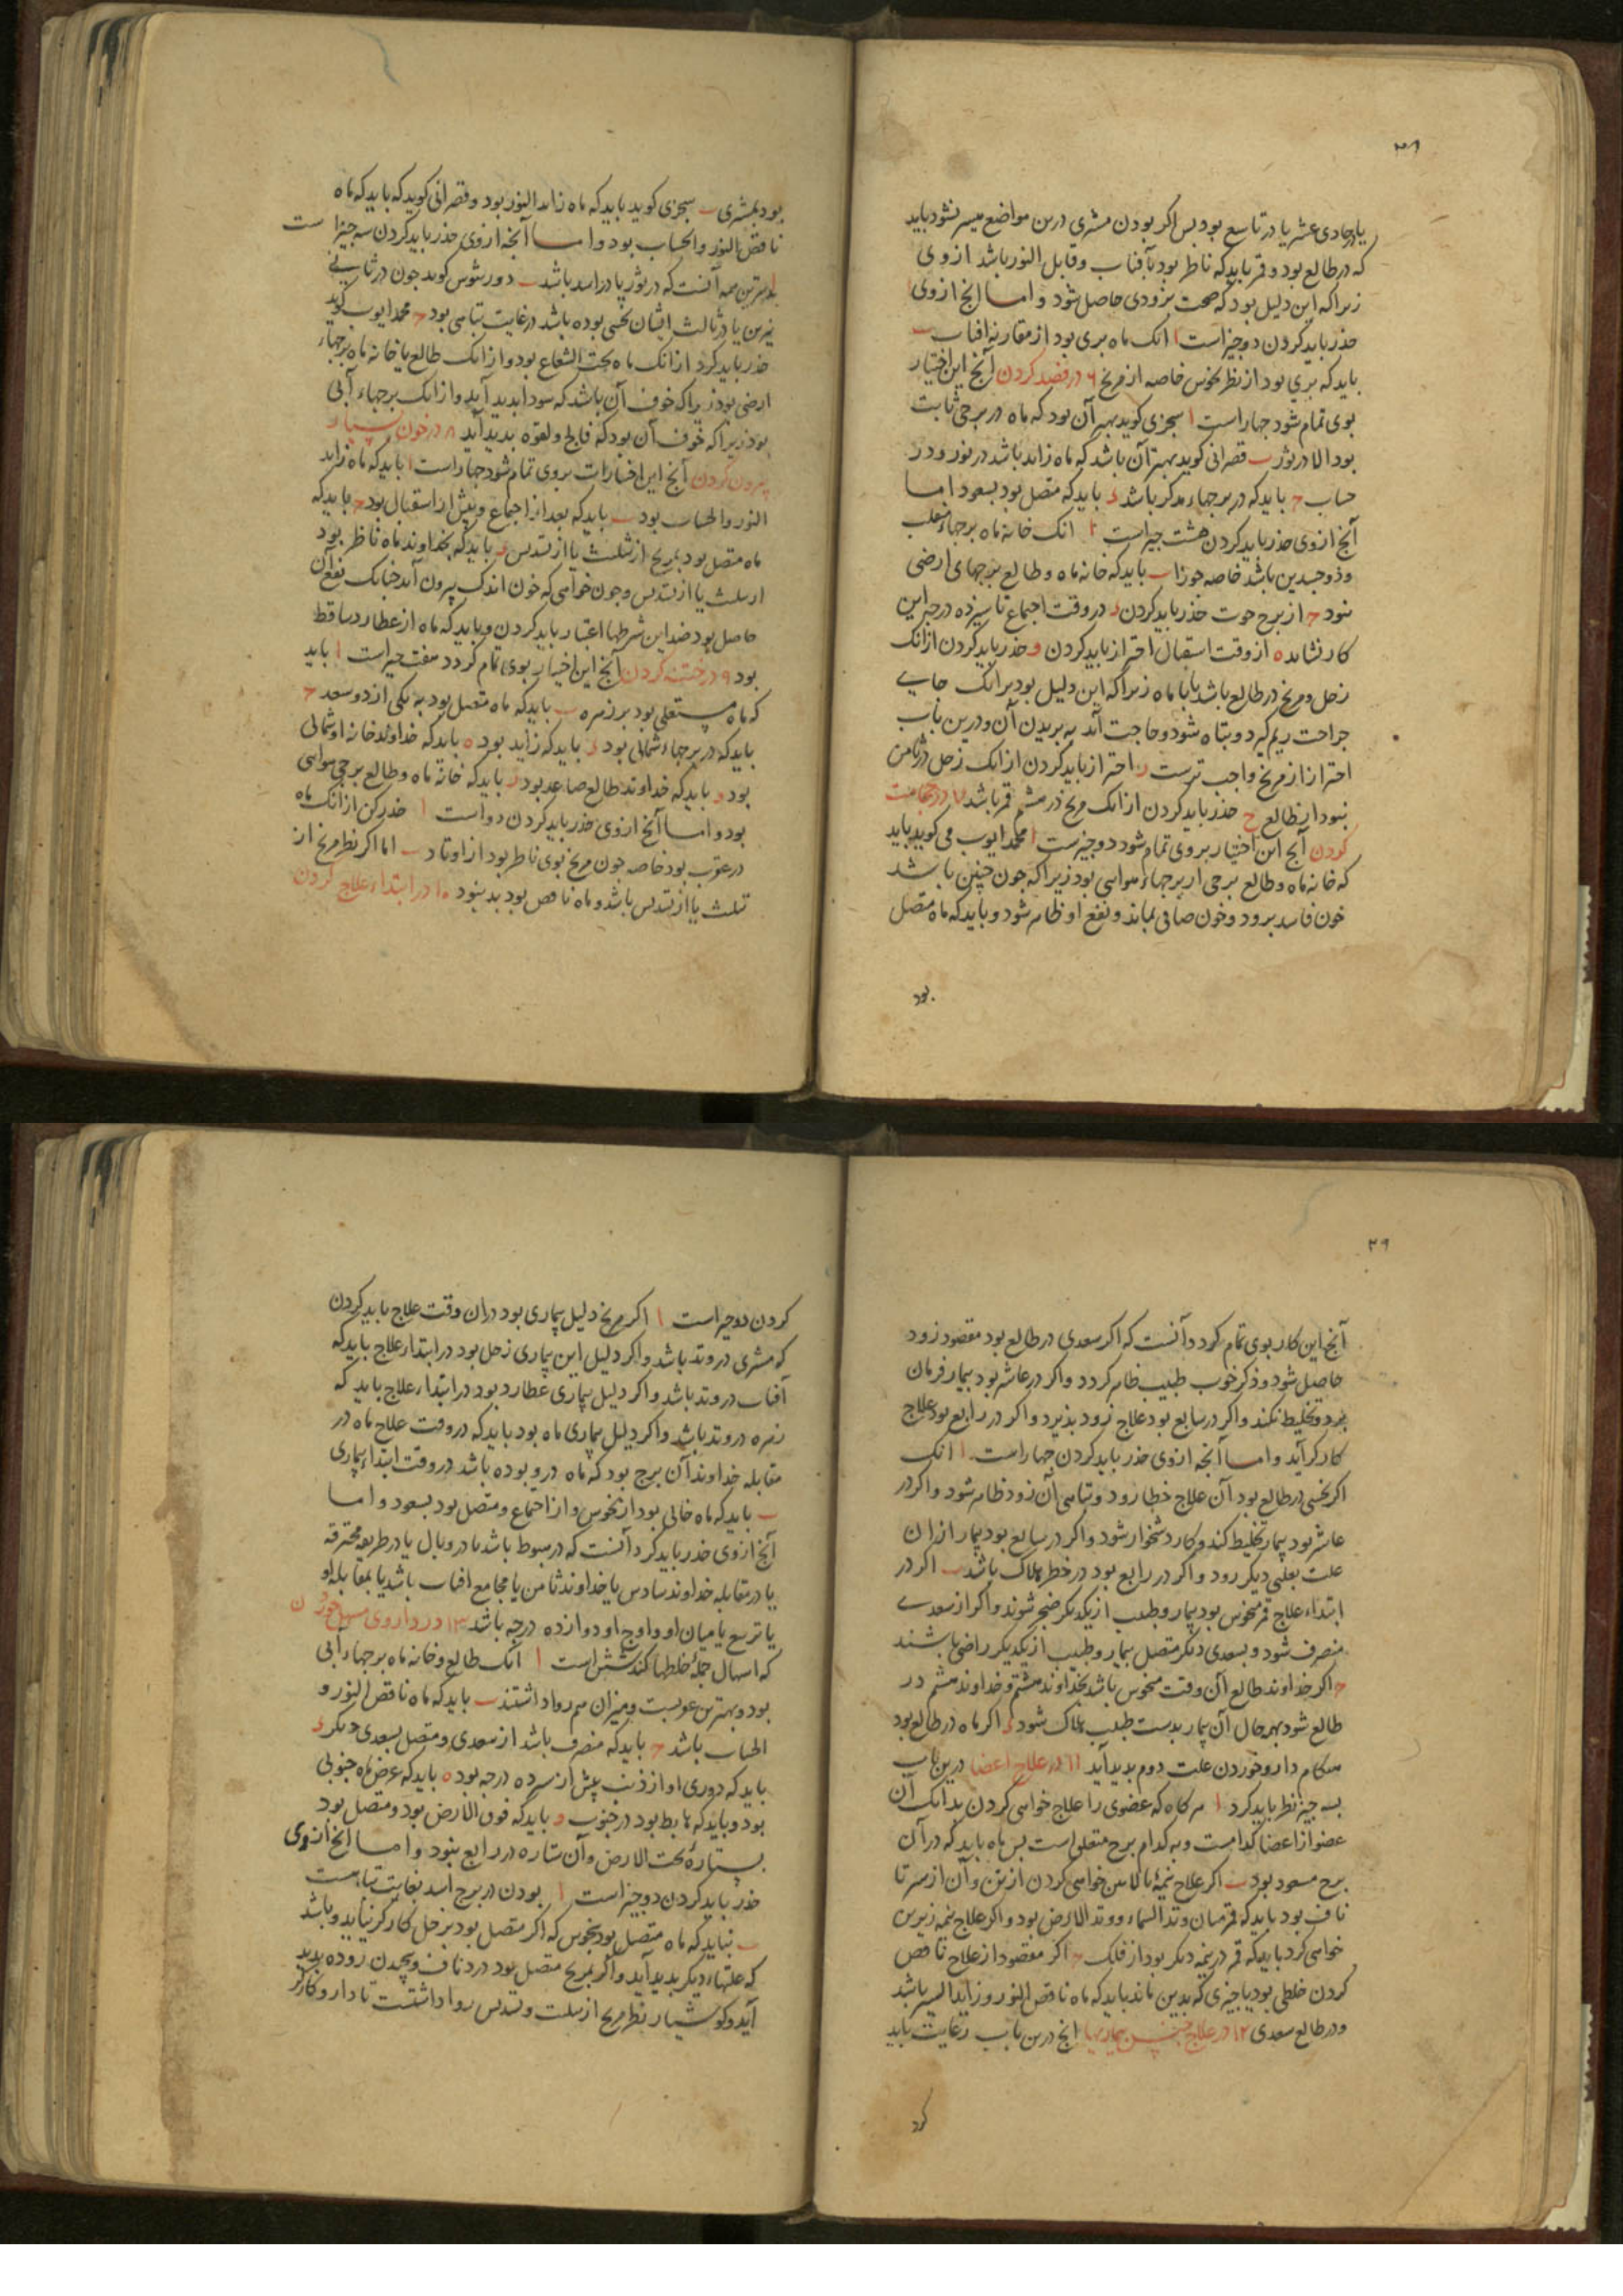 ۲۸
یا در حادی عشر یا در تاسع بود بس اکر بودن مشتری درین مواضع میسر نشود باید
که در طالع بود و قمر باید که ناظر بود بآفتاب و قابل النور باشد از وی
زیرا که این دلیل بود که صحت بزودی حاصل شود و اما آنج ازوی
حذر باید کردن دو جیز است ا انک ماه بری بود از مقارنه افتاب ب
باید که بری بود از نظر نحوس خاصه از مریخ ۶ در فصد کردن آنج این اختیار
بوی تمام شود جهار است ا سجزی کوید بهتر آن بود که ماه در برجی ثابت
بود الا در ثور ب قصرانی کوید بهتر آن باشد که ماه زاید باشد در نور و در
حساب ج باید که در برجهاء مذکر باشد د باید که متصل بود بسعود اما
آنج ازوی حذر باید کردن هشت جیز است ا انک خانه ماه برجهاء منقلب
و ذو جسدین باشد خاصه جوزا ب باید که خانه ماه و طالع برجهای ارضی
نبود ج از برج حوت حذر باید کردن د در وقت اجتماع تا سیزده درجه این
کار نشاید ه از وقت استقبال احتراز باید کردن و حذر باید کردن از انک
زحل و مریخ در طالع باشد یا با ماه زیرا که این دلیل بود بر انک جایے
جراحت ریم کیرد و تباه شود و حاجت آید به بریدن آن و درین باب
احتراز از مریخ واجب ترست ز احتراز باید کردن از انک زحل در ثامن
نبود از طالع ح حذر باید کردن از انک مریخ در هشتم قمر باشد ۷ در حجامت
کردن آنج این اختیار بروی تمام شود دو جیزست ا محمد ایوب می کوید باید
که خانه ماه و طالع برجی از برجهاء هوایی بود زیرا که جون جنین باشد
خون فاسد برود و خون صافی بماند و نفع او ظاهر شود و باید که ماه متصل
بود
بود بمشتری ب سجزی کوید باید که ماه زاید النور بود و قصرانی کوید که باید که ماه
ناقص النور و الحساب بود و اما آنجه ازوی حذر باید کردن سه جیز است
ا بدترین همه آنست که در ثور یا در اسد باشد ب دورثیوس کوید جون در ثانی
نیرین یا در ثالث ایشان نحسی بوده باشد در غایت تباهی بود ج محمد ایوب کوید
حذر باید کرد از انک ماه تحت الشعاع بود و از انک طالع یا خانه ماه برجهاء
ارضی بود زیرا که خوف آن باشد که سودا بدید آید و از انک برجهاء آبی
بود زیرا که خوف آن بود که فالج و لقوه بدید آید ۸ در خون بسیار
بیرون کردن آنج این اختیارات بروی تمام شود جهار است ا باید که ماه زاید
النور و الحساب بود ب باید که بعد از اجتماع و بیش از استقبال بود ج باید که
ماه متصل بود بمریخ از تثلیث یا از تسدیس د باید که بخداوند ماه ناظر بود
از تثلیث یا از تسدیس و جون خواهی که خون اندک بیرون آید جنانک نفع آن
حاصل بود ضد این شرطها اعتبار باید کردن و باید که ماه از عطارد ساقط
بود ۹ در ختنه کردن آنج این اختیار بوی تمام کردد هفت جیز است ا باید
که ماه مستعلی بود بر زهره ب باید که ماه متصل بود به یکی از دو سعد ج
باید که در برجهاء شمالی بود د باید که زاید بود ه باید که خداوند خانه او شمالی
بود و باید که خداوند طالع صاعد بود ز باید که خانه ماه و طالع برجی هوایی
بود و اما آنج ازوی حذر باید کردن دو است ا حذر کن از انک ماه
در عقرب بود خاصه جون مریخ بوی ناظر بود از اوتاد ب اما اکر نظر مریخ از
تثلیث یا از تسدیس باشد و ماه ناقص بود بد نبود ۱۰ در ابتداء علاج کردن
۲۹
آنج این کار بوی تمام کردد آنست که اکر سعدی در طالع بود مقصود زود
حاصل شود و ذکر خوب طبیب ظاهر کردد و اکر در عاشر بود بیمار فرمان
برد و تخلیط نکند و اکر در سابع بود علاج زود بذیرد و اکر در رابع بود علاج
کارکر آید و اما آنجه ازوی حذر باید کردن جهار است ا انک
اکر نحسی در طالع بود آن علاج خطا رود و تباهی آن زود ظاهر شود و اکر در
عاشر بود بیمار تخلیط کند و کار دشخوار شود و اکر در سابع بود بیمار از ان
علت بعلتی دیکر رود و اکر در رابع بود در خطر هلاک باشد ب اکر در
ابتداء علاج قمر منحوس بود بیمار و طبیب از یکدیکر ضجر شوند و اکر از سعدے
منصرف شود و بسعدی دیکر متصل بیمار و طبیب از یکدیکر راضی باشند
ج اکر خداوند طالع آن وقت منحوس باشد بخداوند هشتم و خداوند هشتم در
طالع شود بهر حال آن بیمار بدست طبیب هلاک شود د اکر ماه در طالع بود
هنکام دارو خوردن علت دوم بدید آید ۱۱ در علاج اعضا درین باب
بسه جیز نظر باید کرد ا هرکاه که عضوی را علاج خواهی کردن بدانک آن
عضو از اعضا کدامست و به کدام برج متعلق است بس ماه باید که در آن
برج مسعود بود ب اکر علاج نیمهٔ بالایین خواهی کردن از تن و آن از سر تا
ناف بود باید که قمر میان وتد السماء و وتد الارض بود و اکر علاج نیمه زیرین
خواهی کرد باید که قمر در نیمه دیکر بود از فلک ج اکر مقصود از علاج ناقص
کردن خلطی بود یا جیزی که بدین ماند باید که ماه ناقص النور و زاید السیر باشد
و در طالع سعدی ۱۲ در علاج جنس بیماریها آنج درین باب رعایت باید
کرد
کردن دو جیز است ا اکر مریخ دلیل بیماری بود در ان وقت علاج باید کردن
که مشتری در وتد باشد و اکر دلیل این بیماری زحل بود در ابتداء علاج باید که
آفتاب در وتد باشد و اکر دلیل بیماری عطارد بود در ابتداء علاج باید که
زهره در وتد باشد و اکر دلیل بیماری ماه بود باید که در وقت علاج ماه در
مقابله خداوند آن برج بود که ماه درو بوده باشد در وقت ابتداء بیماری
ب باید که ماه خالی بود از نحوس و از اجتماع و متصل بود بسعود و اما
آنج ازوی حذر باید کرد آنست که در هبوط باشد یا در وبال یا در طریقه محترقه
یا در مقابله خداوند سادس یا خداوند ثامن یا مجامع افتاب باشد یا بمقابله او
یا تربیع یا میان او و اوج او دوازده درجه باشد ۱۳ در داروی مسهل خوردن
که اسهال جملهٔ خلطها کند شش است ا انک طالع و خانه ماه برجهاء آبی
بود و بهترین عقربست و میزان هم روا داشتند ب باید که ماه ناقص النور و
الحساب باشد ج باید که منصرف باشد از سعدی و متصل بسعدی دیکر د
باید که دوری او از ذنب بیش از سیزده درجه بود ه باید که عرض ماه جنوبی
بود و باید که هابط بود در جنوب و باید که فوق الارض بود و متصل بود
بستارهٔ تحت الارض و آن ستاره در رابع نبود و اما آنج ازوی
حذر باید کردن دو جیز است ا بودن در برج اسد بغایت تباهست
ب نباید که ماه متصل بود بنحوس که اکر متصل بود بزحل کارکر نیاید و باشد
که علتهاء دیکر بدید آید و اکر بمریخ متصل بود درد ناف و بیجیدن روده بدید
آید و کوشیار نظر مریخ از تثلیث و تسدیس روا داشتست تا دارو کارکر